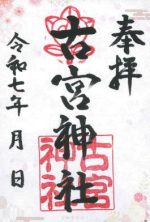 奉拝
古宮神社
古宮
神社
令和七年 月 日